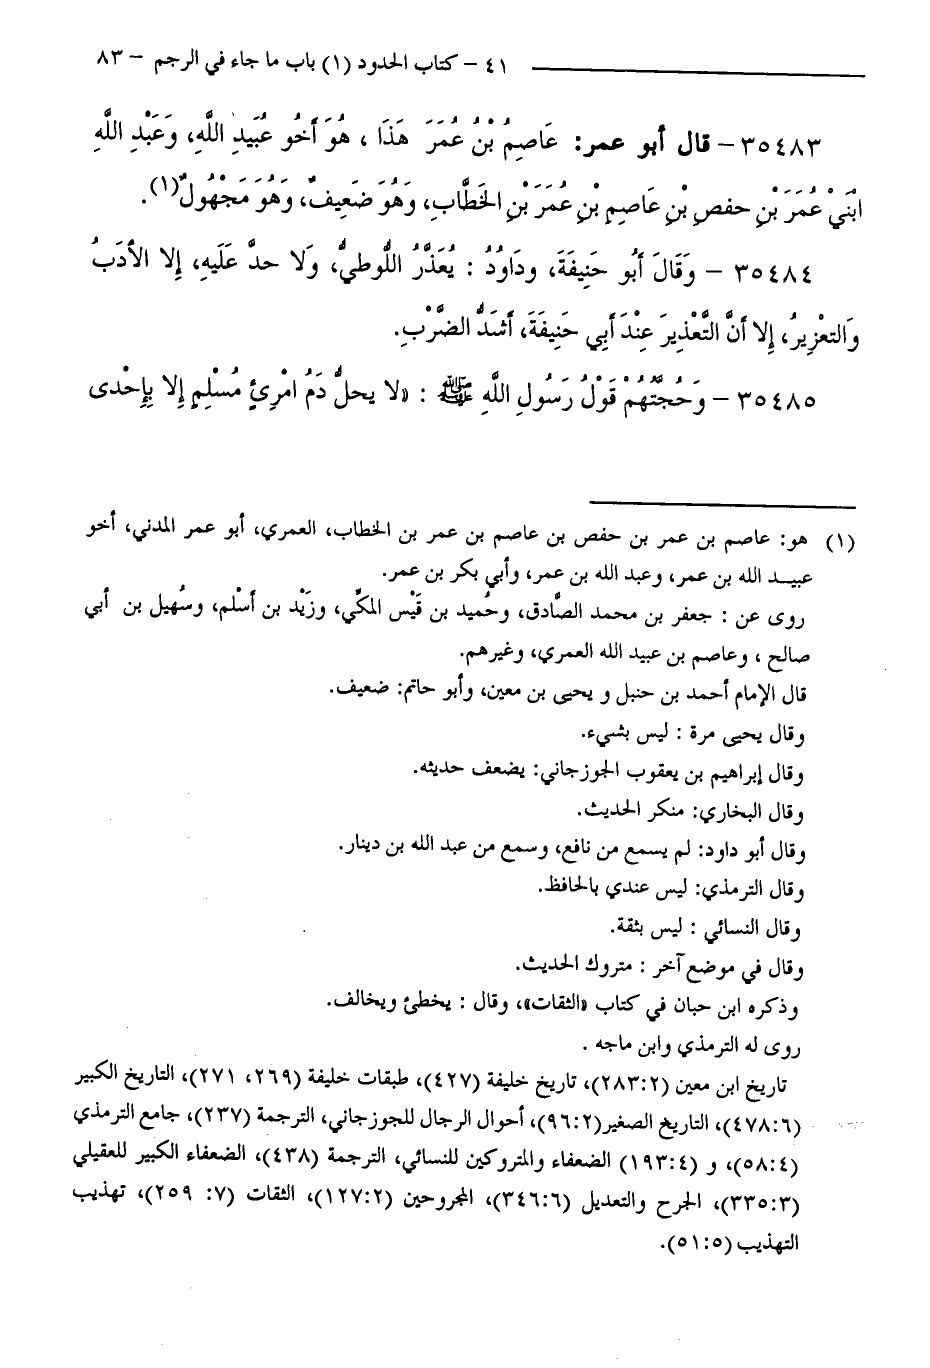 ٤١ – كتاب الحدود (١) باب ما جاء في الرجم – ٨٣
٣٥٤٨٣ – قال أبو عمر: عَاصِمُ بْنُ عُمَرَ هَذَا ، هُوَ أَخُو عُبَيدِ اللَّهِ، وَعَبْدِ اللَّهِ
ابْنَيْ عُمَرَ بْنِ حفصِ بْنِ عَاصِمِ بْنِ عُمَرَ بْنِ الخَطَّابِ، وَهُوَ ضَعِيفٌ، وَهُوَ مَجْهُولٌ(١).
٣٥٤٨٤ – وَقَالَ أَبُو حَنِيفَةَ، ودَاوُدُ : يُعَذَّرُ اللُّوطيُّ، وَلَا حدَّ عَلَيهِ، إِلا الأَدَبُ
وَالتعْزِيرُ، إِلا أَنَّ التَّعْذِيرَ عِنْدَ أَبِي حَنِيفَةَ، أَشَدُّ الضَّرْبِ.
٣٥٤٨٥ – وَحُجَّتُهُمْ قَوْلُ رَسُولِ اللَّهِ ﷺ : «لا يحلُّ دَمُ امْرِئٍ مُسْلِمٍ إِلا بِإِحْدى
(١) هو: عاصم بن عمر بن حفص بن عاصم بن عمر بن الخطاب، العمري، أبو عمر المدني، أخو
عبيد الله بن عمر، وعبد الله بن عمر، وأبي بكر بن عمر.
روى عن : جعفر بن محمد الصَّادق، وحُميد بن قَيْس المكِّي، وزَيْد بن أسْلم، وسُهيل بن أبي
صالح ، وعاصم بن عبيد الله العمري، وغيرهم.
قال الإمام أحمد بن حنبل و يحيى بن معين، وأبو حاتم: ضعيف.
وقال يحيى مرة : ليس بشيء.
وقال إبراهيم بن يعقوب الجوزجاني: يضعف حديثه.
وقال البخاري: منكر الحديث.
وقال أبو داود: لم يسمع من نافع، وسمع من عبد الله بن دينار.
وقال الترمذي: ليس عندي بالحافظ.
وقال النسائي : ليس بثقة.
وقال في موضع آخر : متروك الحديث.
وذكره ابن حبان في كتاب «الثقات»، وقال : يخطئ ويخالف.
روى له الترمذي وابن ماجه .
تاريخ ابن معين (٢٨٣:٢)، تاريخ خليفة (٤٢٧)، طبقات خليفة (٢٦٩، ٢٧١)، التاريخ الكبير
(٤٧٨:٦)، التاريخ الصغير(٩٦:٢)، أحوال الرجال للجوزجاني، الترجمة (٢٣٧)، جامع الترمذي
(٥٨:٤)، و (١٩٣:٤) الضعفاء والمتروكين للنسائي، الترجمة (٤٣٨)، الضعفاء الكبير للعقيلي
(٣٣٥:٣)، الجرح والتعديل (٣٤٦:٦)، المجروحين (١٢٧:٢)، الثقات (٧: ٢٥٩)، تهذيب
التهذيب (٥١:٥).